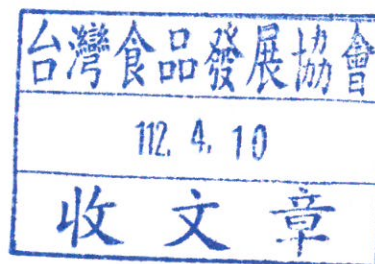 台灣食品發展協會
112. 4. 10
收文章